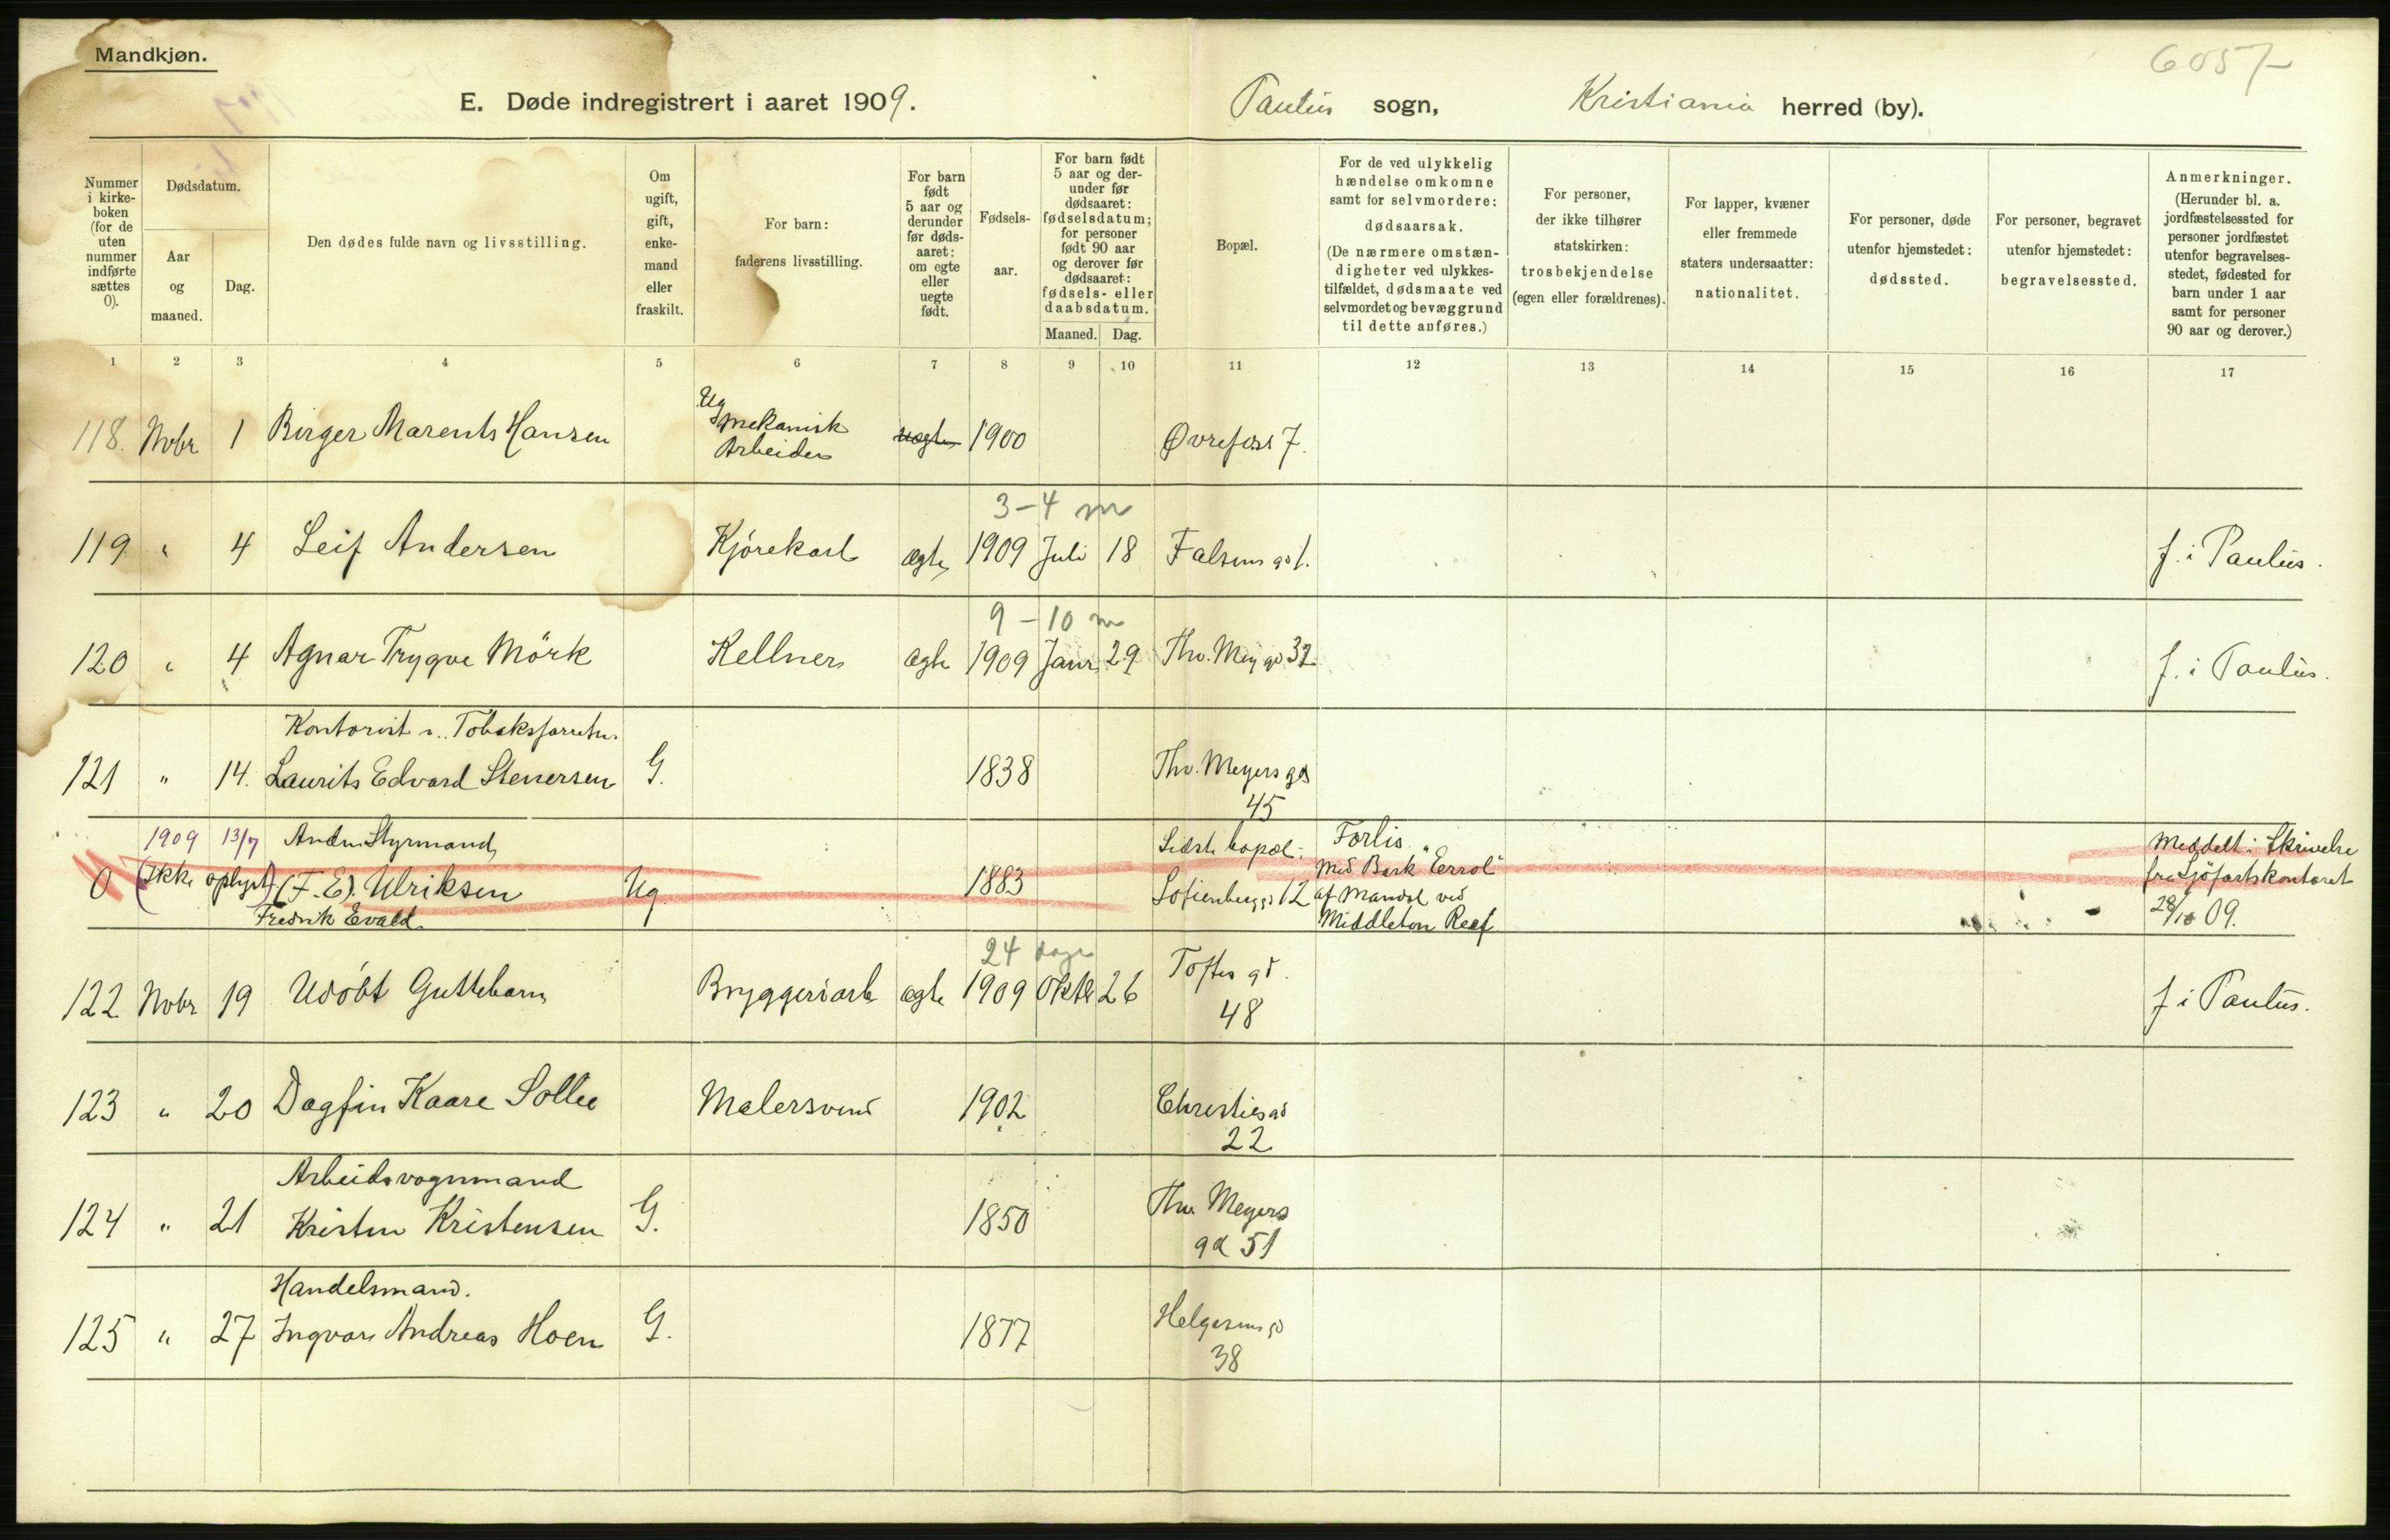 Mandkjøn.
6057
E. Døde indregistrert i aaret 1909. Paulus sogn, Kristiania herred (by).
Nummer i kirke-boken (for de uten nummer indførte sættes 0).
Dødsdatum.
Aar og maaned.
Dag.
Den dødes fulde navn og livsstilling.
Om ugift, gift, enke-mand eller fraskilt.
For barn: faderens livsstilling.
For barn født 5 aar og derunder før døds-aaret: om egte eller uegte født.
Fødsels-aar.
For barn født 5 aar og der-under før dødsaaret: fødselsdatum; for personer født 90 aar og derover før dødsaaret: fødsels- eller daabsdatum.
Maaned. Dag.
Bopæl.
For de ved ulykkelig hændelse omkomne samt for selvmordere: dødsaarsak. (De nærmere omstæn-digheter ved ulykkes-tilfældet, dødsmaate ved selvmordet og bevæggrund til dette anføres.)
For personer, der ikke tilhører statskirken: trosbekjendelse (egen eller forældrenes).
For lapper, kvæner eller fremmede staters undersaatter: nationalitet.
For personer, døde utenfor hjemstedet: dødssted.
For personer, begravet utenfor hjemstedet: begravelsessted.
Anmerkninger. (Herunder bl. a. jordfæstelsessted for personer jordfæstet utenfor begravelses-stedet, fødested for barn under 1 aar samt for personer 90 aar og derover.)
1 2 3 4 5 6 7 8 9 10 11 12 13 14 15 16 17
Ug
118. Novbr 1 Birger Marents Hansen mekanisk Arbeider uegte 1900 Øvrefoss 7.
3-4 m
119 " 4 Leif Andersen Kjørekarl ægte 1909 Juli 18 Falsens gd 1. f. i Paulus.
9-10 m
120 " 4 Agnar Trygve Mörk Kellner ægte 1909 Janr 29 Thv. Mey gd 32 f. i Paulus.
Kontorist
121 " 14. Laurits Edvard Stenersen G. 1838 Thv. Meyers gd
45
1909 13/7 Anden Styrmand Sidste bopæl: Forlis Meddelt i Skrivelse
0 (Ikke oplyst) (F. E). Ulriksen Ug 1883 Sofienberggd 12 med Bark "Errol" fra Sjöfartskontoret
Fredrik Evald af Mandal ved
Middleton Reef 28/10 09.
24 dage
122 Novbr 19 Udöbt Guttebarn Bryggeriarb ægte 1909 Oktbr 26 Toftes gd. f i Paulus.
48
123 " 20 Dagfin Kaare Sollie Malersvend 1902 Christies gd
22
Arbeidsvognmand
124 " 21 Kristen Kristensen G. 1850 Thv Meyers
gd 51
Handelsmand.
125 " 27 Ingvar Andreas Hoen G. 1877 Helgesens gd
38